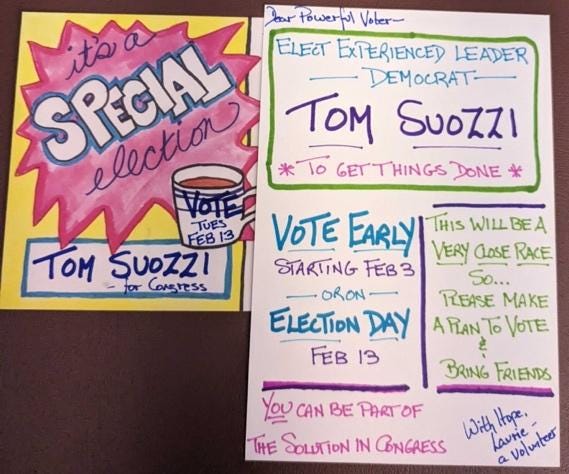 it's a
SPECIAL
election
VOTE
TUES
FEB 13
TOM SUOZZI
- for Congress
Dear Powerful Voter-
ELECT EXPERIENCED LEADER
- DEMOCRAT -
TOM SUOZZI
* TO GET THINGS DONE *
VOTE EARLY
STARTING FEB 3
- OR ON -
ELECTION DAY
FEB 13
THIS WILL BE A
VERY CLOSE RACE
SO...
PLEASE MAKE
A PLAN TO VOTE
&
BRING FRIENDS
YOU CAN BE PART OF
THE SOLUTION IN CONGRESS
With Hope,
Laurie -
a volunteer